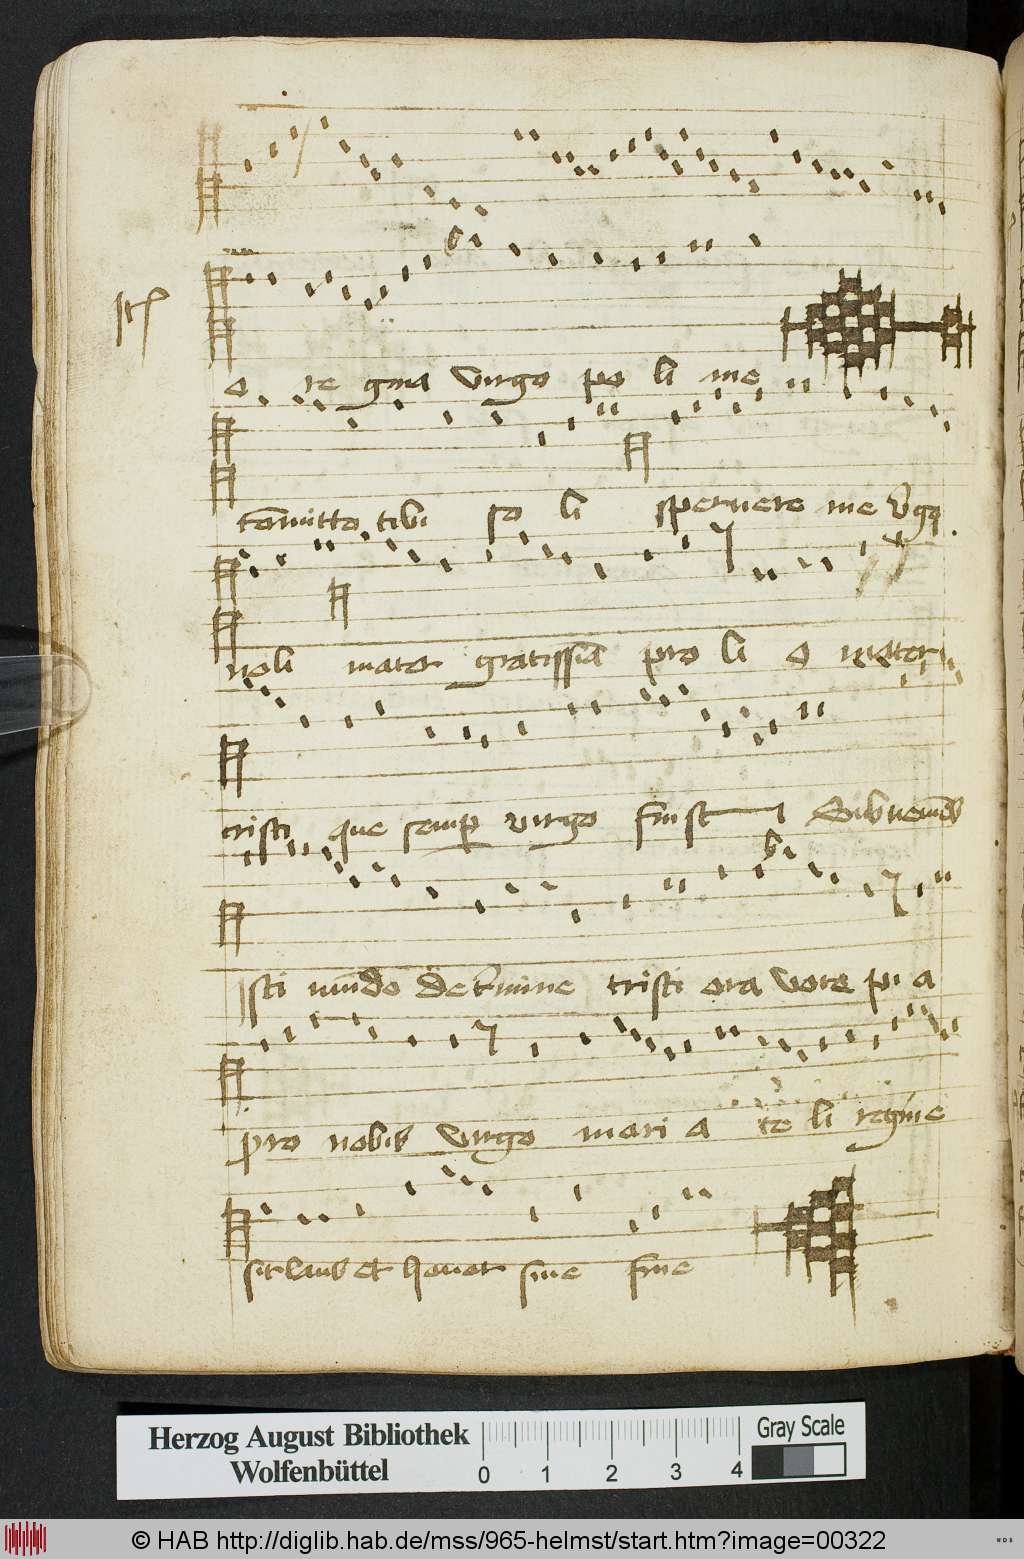 O re gina virgo po li me
co͞mitto tibi so li spernere me v͛go
noli mater gratissi͞a pro li o mater
tristi que semp̱ virgo fuisti Subuenie͞s
isti mu͞do de c͛mine tristi ora voce pi a
pro nobis virgo mari a ce li regi͞ne
sit laus et honor sine fine
Herzog August Bibliothek
Wolfenbüttel
0 1 2 3 4
Gray Scale
© HAB http://diglib.hab.de/mss/965-helmst/start.htm?image=00322